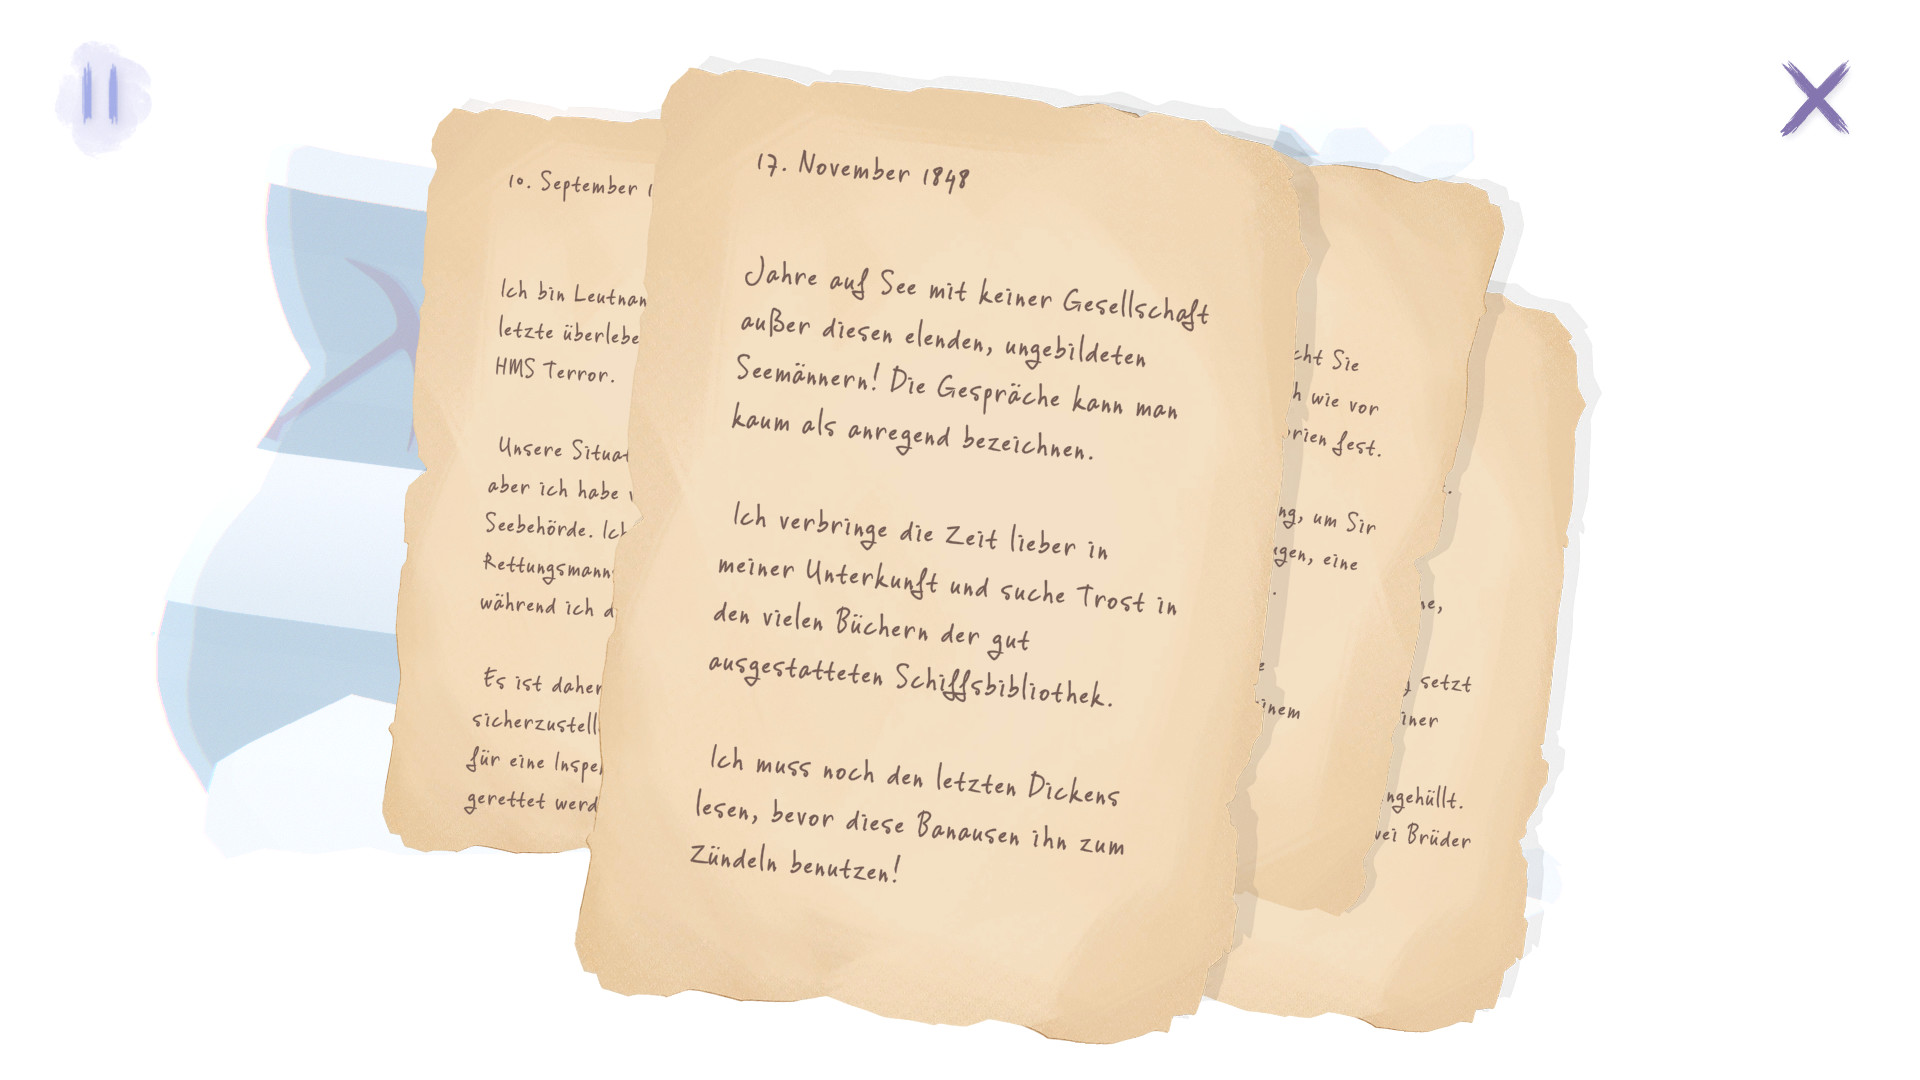 10. September
Ich bin
letzte
HMS Terror.
Unsere
aber ich habe
Seebehörde.
während ich
Es ist daher
für eine
gerettet
17. November 1848
Jahre auf See mit keiner Gesellschaft
außer diesen elenden, ungebildeten
Seemännern! Die Gespräche kann man
kaum als anregend bezeichnen.
Ich verbringe die Zeit lieber in
meiner Unterkunft und suche Trost in
den vielen Büchern der gut
ausgestatteten Schiffsbibliothek.
Ich muss noch den letzten Dickens
lesen, bevor diese Banausen ihn zum
Zündeln benutzen!
Sie
wie vor
fest.
um Sir
eine
setzt
Brüder